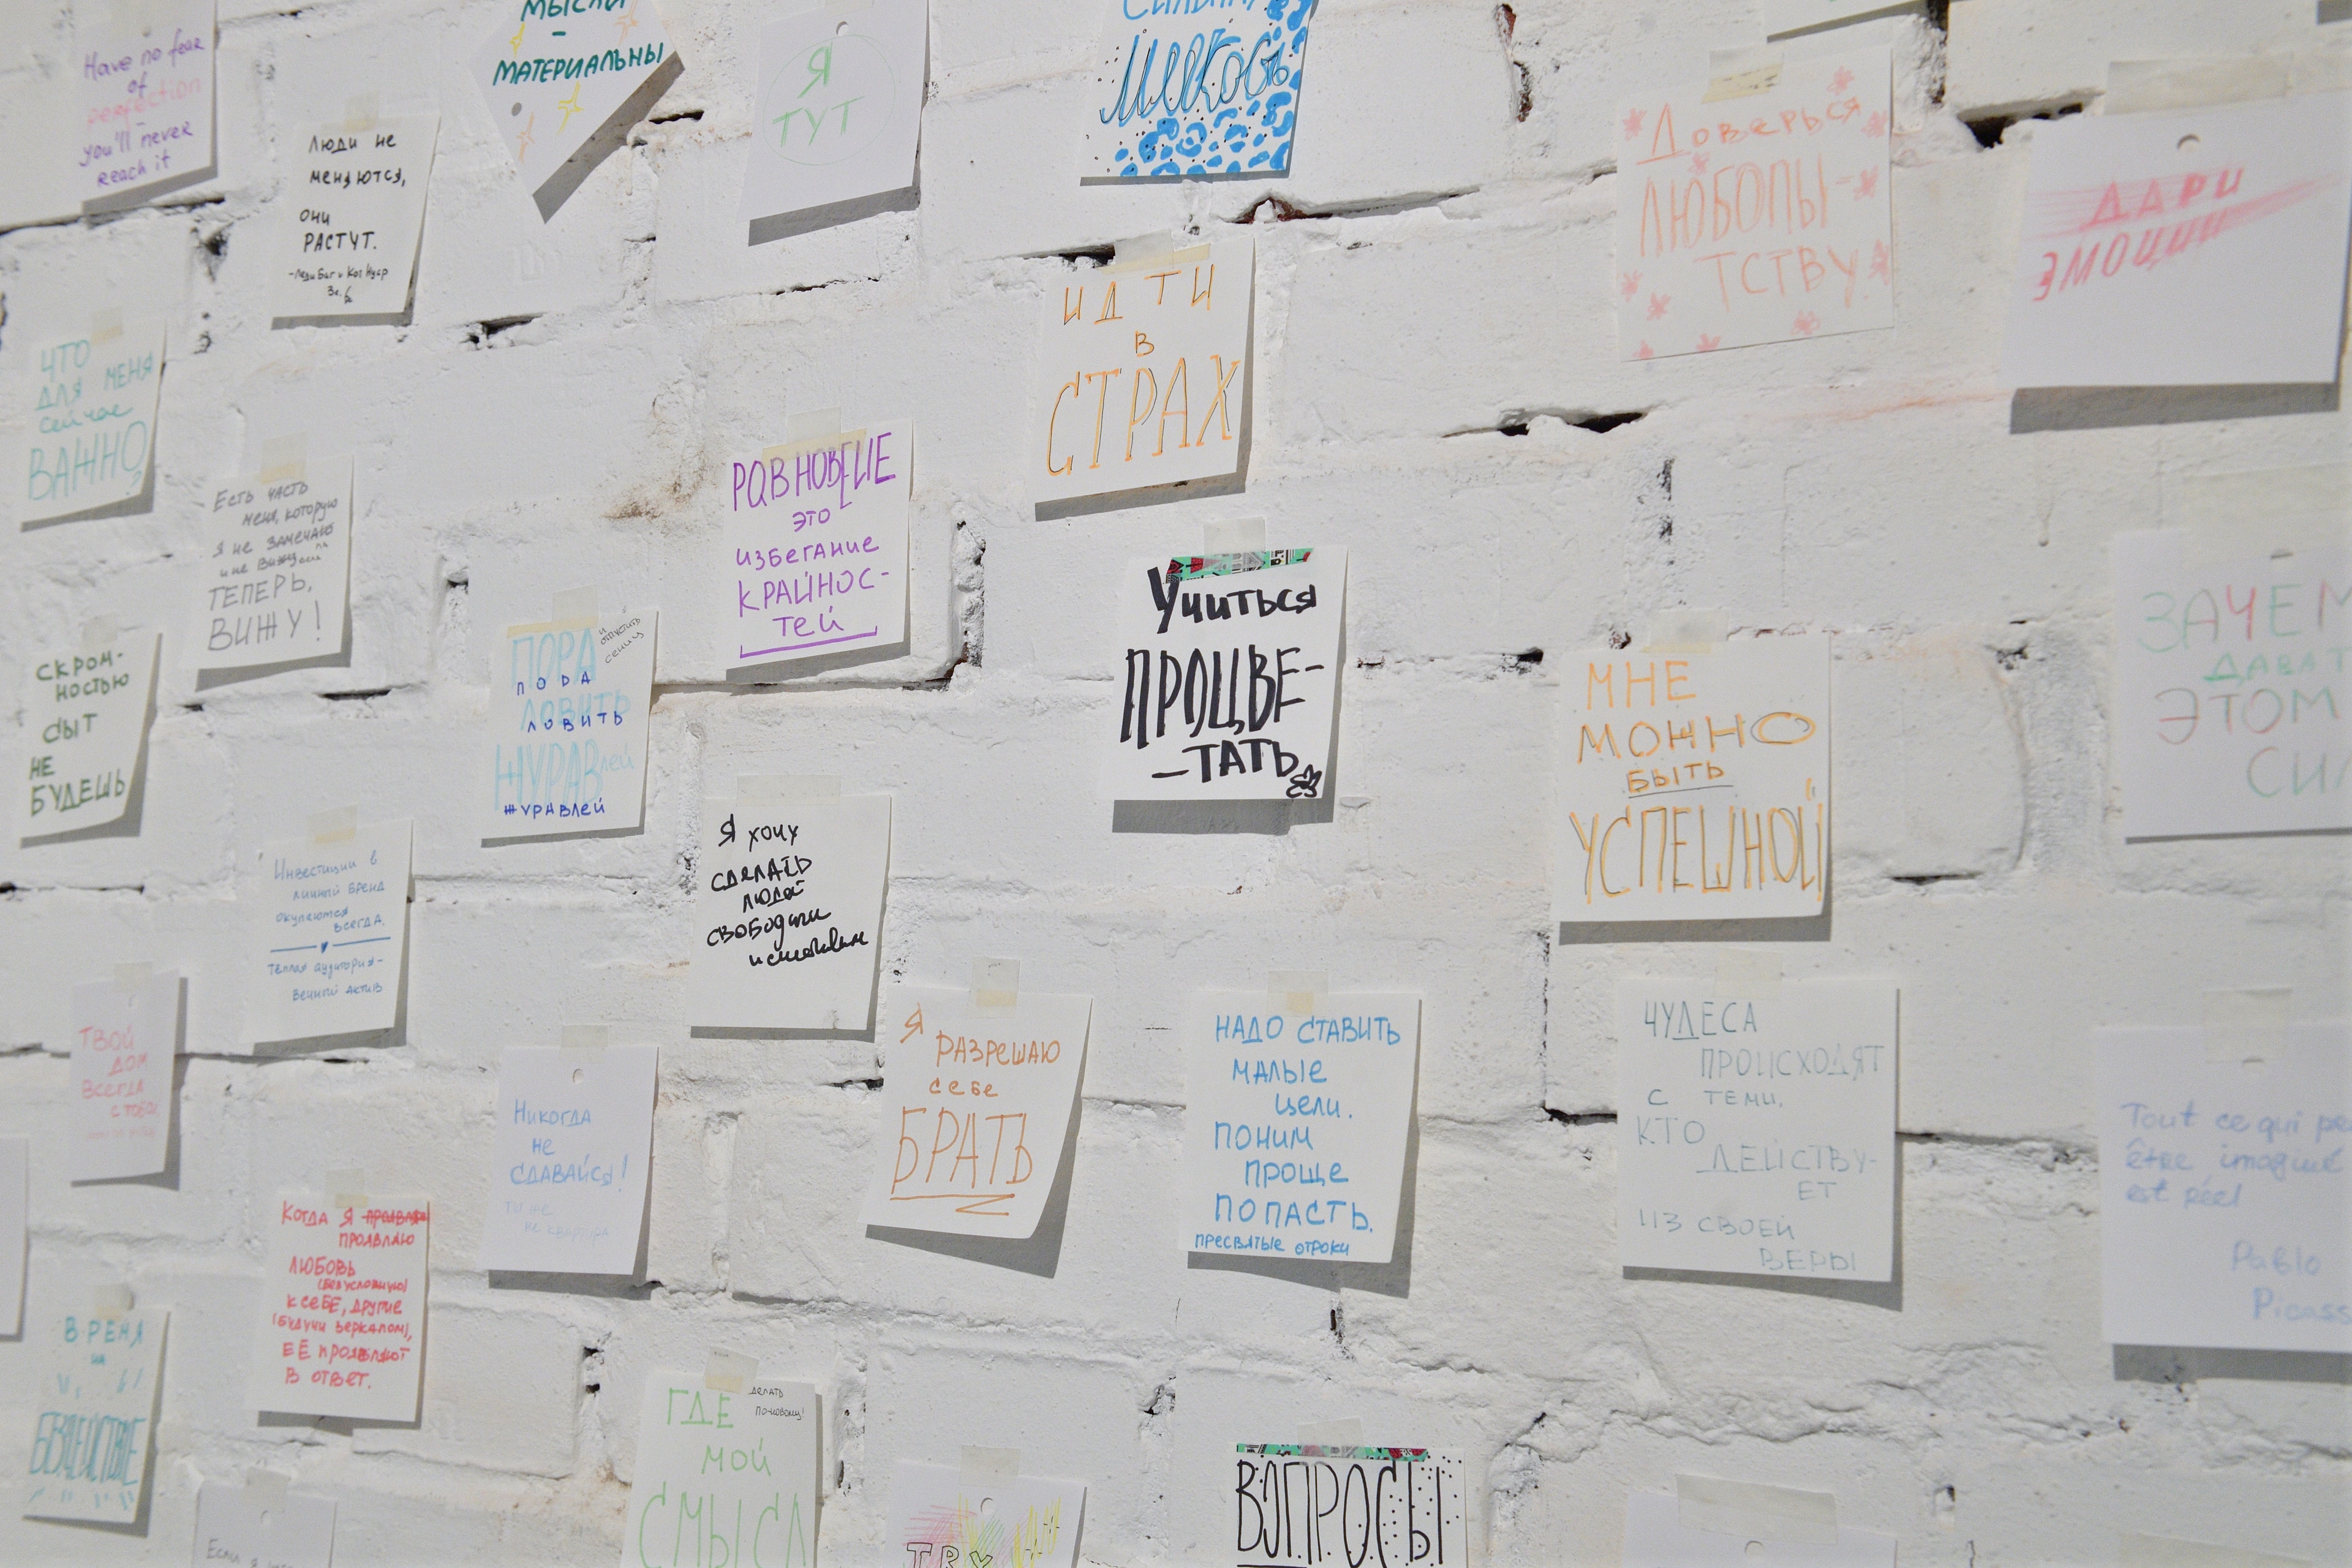 Have no fear
of
perfection
–
you'll never
reach it
ЛЮДИ НЕ
МЕНЯЮТСЯ,
ОНИ
РАСТУТ.
МЫСЛИ
–
МАТЕРИАЛЬНЫ
Я
ТУТ
МЯГКОСТЬ
Доверься
ЛЮБОПЫ-
ТСТВУ
ДАРИ
ЭМОЦИИ
ЧТО
ДЛЯ МЕНЯ
сейчас
ВАЖНО?
Есть часть
меня, которую
я не замечаю
и не вижу
ТЕПЕРЬ,
ВИЖУ!
РАВНОВЕСИЕ
ЭТО
ИЗБЕГАНИЕ
КРАЙНОС-
ТЕЙ
ИДТИ
В
СТРАХ
Учиться
ПРОЦВЕ-
-ТАТЬ
СКРОМ-
НОСТЬЮ
СЫТ
НЕ
БУДЕШЬ
ПОРА
и
отпустить
синиц
ПОРА
ЛОВИТЬ
ЛОВИТЬ
ЖУРАВлей
ЖУРАВЛЕЙ
МНЕ
МОЖНО
БЫТЬ
УСПЕШНОЙ
ЗАЧЕМ
ДАВАТ
ЭТОМ
СИЛ
Инвестиции в
личный бренд
окупаются
всегда.
Тёплая аудитория-
вечный актив
Я хочу
сделать
людей
свободными
ТВОЙ
ДОМ
ВСЕГДА
С ТОБОЙ
Никогда
не
сдавайся!
Я
РАЗРЕШАЮ
себе
БРАТЬ
НАДО СТАВИТЬ
МАЛЫЕ
ЦЕЛИ.
ПОНИМ
ПРОЩЕ
ПОПАСТЬ.
ПРЕСВЯТЫЕ ОТРОКИ
ЧУДЕСА
ПРОИСХОДЯТ
С ТЕМИ,
КТО
ДЕЙСТВУ-
ЕТ
ИЗ СВОЕЙ
ВЕРЫ
Tout ce qui pe
être imaginé
est réel
Pablo
Picass
КОГДА Я
ПРОЯВЛЯЮ
ЛЮБОВЬ
(безусловную)
К СЕБЕ, ДРУГИЕ
(БУДУЧИ ЗЕРКАЛОМ),
ЕЁ ПРОЯВЛЯЮТ
В ОТВЕТ.
ВРЕМЯ
на
БЕЗДЕЙСТВИЕ
ГДЕ
делать
по-новому!
МОЙ
СМЫСЛ
Если я
TRY
ВОПРОСЫ